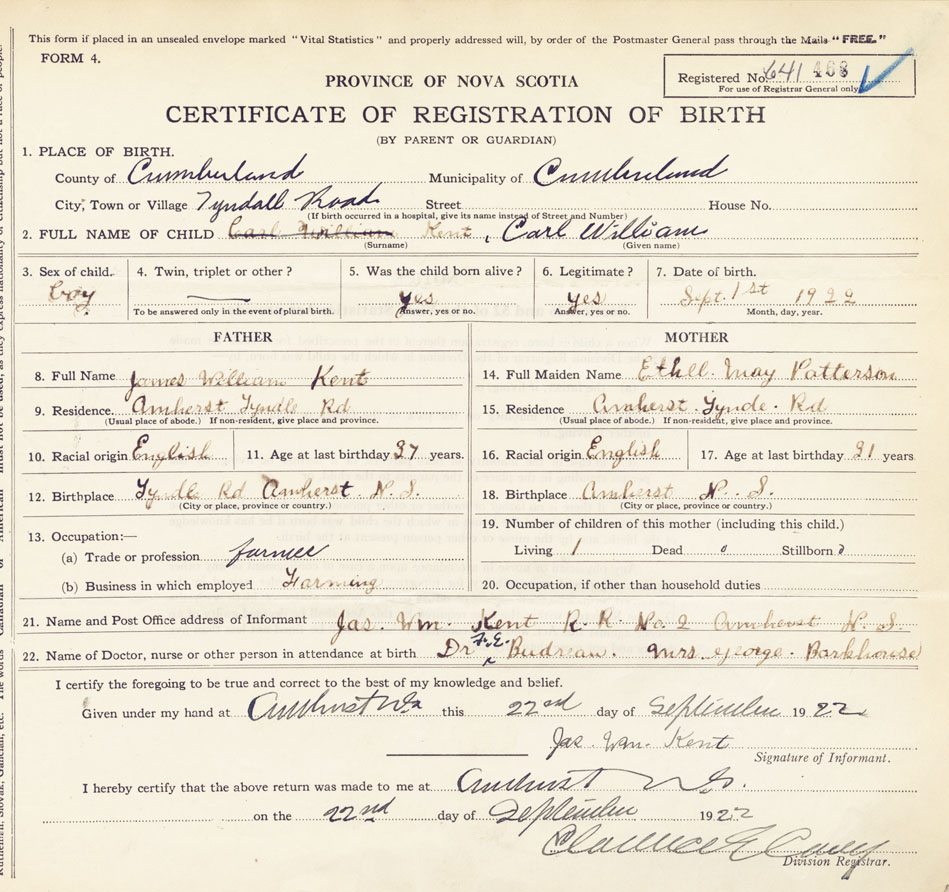 This form if placed in an unsealed envelope marked "Vital Statistics" and properly addressed will, by order of the Postmaster General pass through the Mails "FREE."
FORM 4.
Registered No. 641 468
For use of Registrar General only
PROVINCE OF NOVA SCOTIA
CERTIFICATE OF REGISTRATION OF BIRTH
(BY PARENT OR GUARDIAN)
1. PLACE OF BIRTH.
County of Cumberland Municipality of Cumberland
City, Town or Village Tyndall Road Street House No.
(If birth occurred in a hospital, give its name instead of Street and Number)
2. FULL NAME OF CHILD Carl William Kent, Carl William
(Surname) (Given name)
3. Sex of child. 4. Twin, triplet or other? 5. Was the child born alive? 6. Legitimate? 7. Date of birth.
boy yes yes Sept. 1st 1922
To be answered only in the event of plural birth. Answer, yes or no. Answer, yes or no. Month, day, year.
FATHER MOTHER
8. Full Name James William Kent 14. Full Maiden Name Ethell May Patterson
9. Residence. Amherst Tyndle Rd 15. Residence Amherst. Tynde. Rd
(Usual place of abode.) If non-resident, give place and province. (Usual place of abode.) If non-resident, give place and province.
10. Racial origin English 11. Age at last birthday 27 years. 16. Racial origin English 17. Age at last birthday 21 years
12. Birthplace Tyndle Rd Amherst. N. S. 18. Birthplace Amherst N. S.
(City or place, province or country.) (City or place, province or country.)
19. Number of children of this mother (including this child.)
13. Occupation:—
(a) Trade or profession farmer Living 1 Dead 0 Stillborn 0
(b) Business in which employed Farming 20. Occupation, if other than household duties
21. Name and Post Office address of Informant Jas. Wm. Kent R. R. No. 2 Amherst N. S.
22. Name of Doctor, nurse or other person in attendance at birth Dr F. E. Budreau. Mrs George. Barkhouse
I certify the foregoing to be true and correct to the best of my knowledge and belief.
Given under my hand at Amherst NS this 22nd day of September 1922
Jas. Wm. Kent
Signature of Informant.
I hereby certify that the above return was made to me at Amherst N. S.
on the 22nd day of September 1922
Clarence E Casey
Division Registrar.